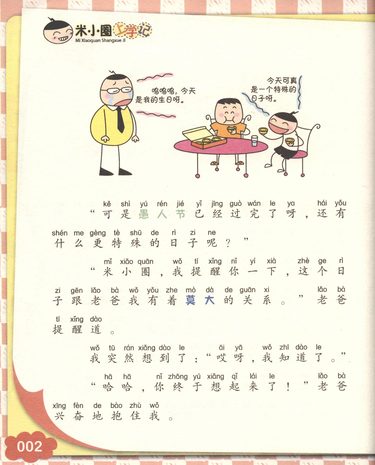 米小圈上学记
Mi Xiaoquan Shangxue Ji
呜呜呜,今天
是我的生日呀。
今天可真
是一个特殊的
日子呀。
kě shì yú rén jié yǐ jīng guò wán le ya hái yǒu
“可是愚人节已经过完了呀,还有
shén me gèng tè shū de rì zi ne
什么更特殊的日子呢?”
mǐ xiǎo quān wǒ tí xǐng nǐ yí xià zhè ge rì
“米小圈,我提醒你一下,这个日
zi gēn lǎo bà wǒ yǒu zhe mò dà de guān xi lǎo bà
子跟老爸我有着莫大的关系。”老爸
tí xǐng dào
提醒道。
wǒ tū rán xiǎng dào le āi yā wǒ zhī dào le
我突然想到了:“哎呀,我知道了。”
hā hā nǐ zhōng yú xiǎng qǐ lái le lǎo bà
“哈哈,你终于想起来了!”老爸
xīng fèn de bào zhù wǒ
兴奋地抱住我。
002